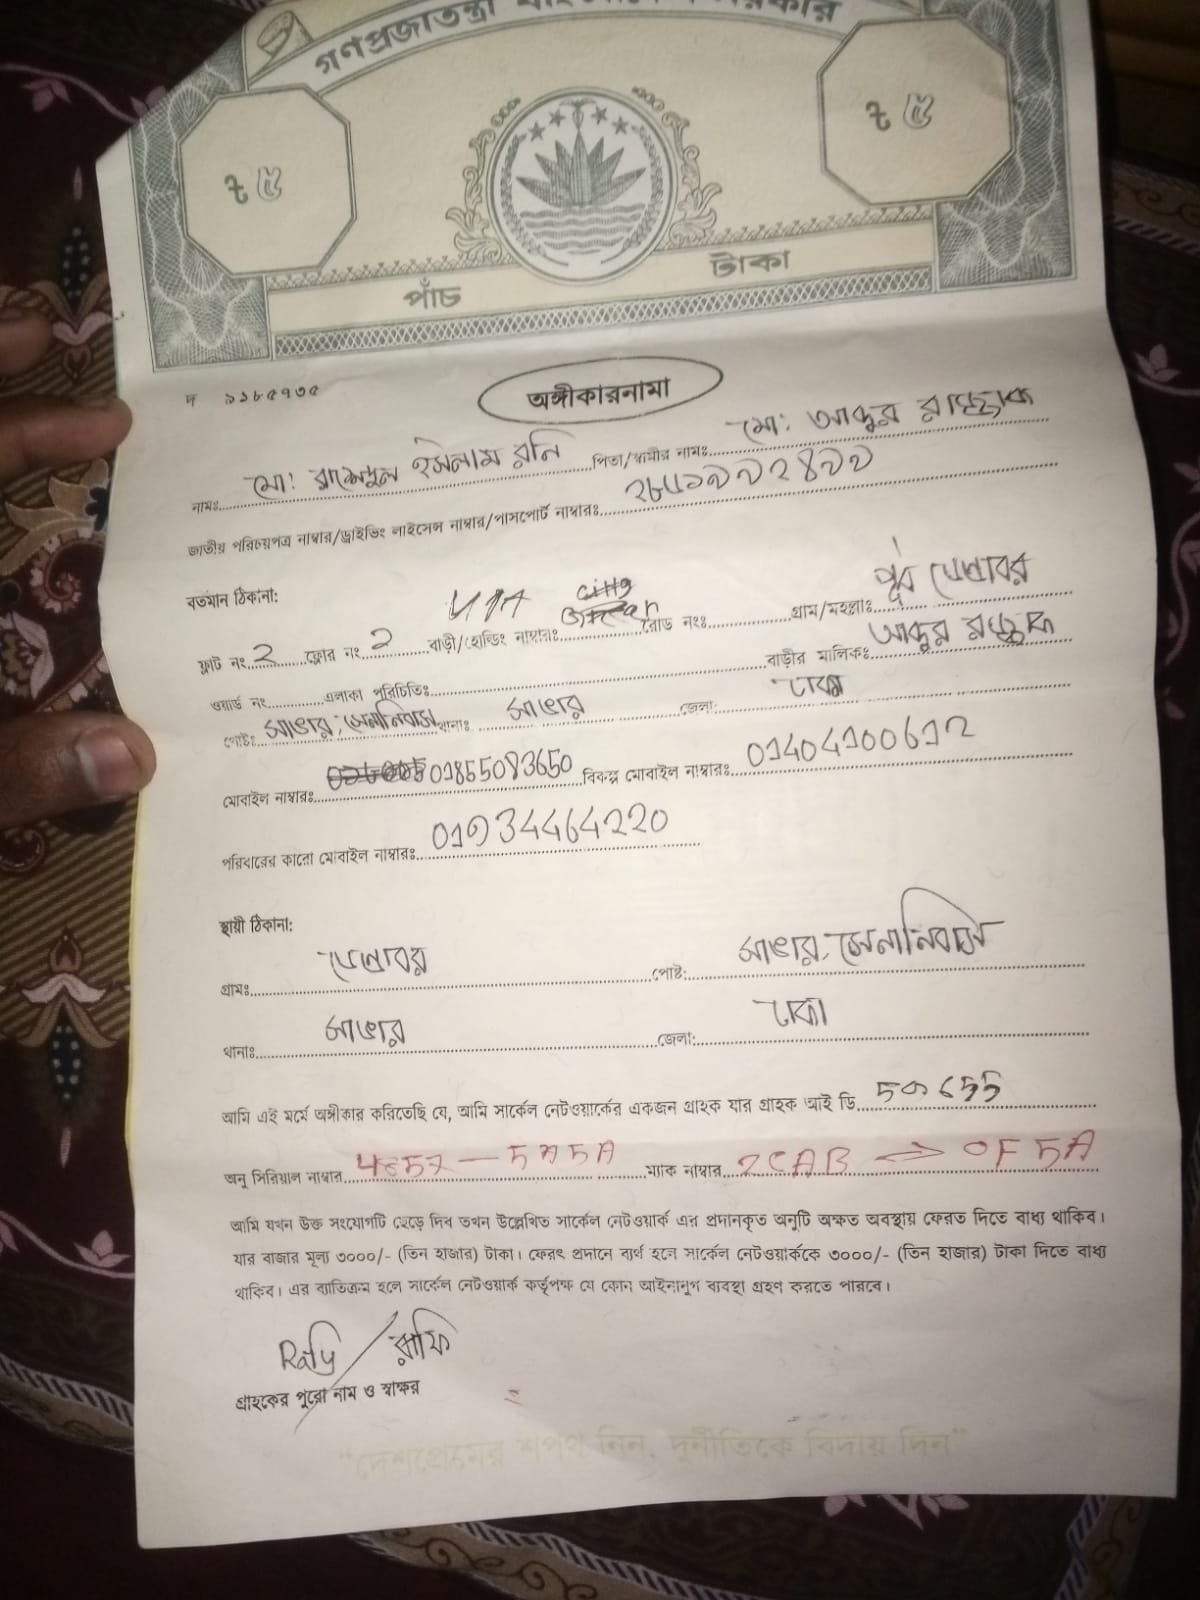 গণপ্রজাতন্ত্রী
৳ ৫
৳ ৫
পাঁচ টাকা
দ ৯১৮৫৭৩৫
অঙ্গীকারনামা
নামঃ মো: রাশেদুল ইসলাম রনি পিতা/স্বামীর নামঃ মো: আব্দুর রাজ্জাক
জাতীয় পরিচয়পত্র নাম্বার/ড্রাইভিং লাইসেন্স নাম্বার/পাসপোর্ট নাম্বারঃ
বর্তমান ঠিকানা:
ফ্লাট নং 2 ফ্লোর নং 2 বাড়ী/হোল্ডিং নাম্বারঃ রোড নংঃ গ্রাম/মহল্লাঃ পূর্ব
ওয়ার্ড নং এলাকা পরিচিতিঃ বাড়ীর মালিকঃ আব্দুর রাজ্জাক
পোষ্টঃ সাভার, সেনানিবাস থানাঃ সাভার জেলা: ঢাকা
মোবাইল নাম্বারঃ 01855083650 বিকল্প মোবাইল নাম্বারঃ 01404100612
পরিবারের কারো মোবাইল নাম্বারঃ 01934464220
স্থায়ী ঠিকানা:
গ্রামঃ পোষ্ট: সাভার, সেনানিবাস
থানাঃ সাভার জেলা: ঢাকা
আমি এই মর্মে অঙ্গীকার করিতেছি যে, আমি সার্কেল নেটওয়ার্কের একজন গ্রাহক যার গ্রাহক আই ডি
অনু সিরিয়াল নাম্বার ম্যাক নাম্বার 2CAB 0F5A
আমি যখন উক্ত সংযোগটি ছেড়ে দিব তখন উল্লেখিত সার্কেল নেটওয়ার্ক এর প্রদানকৃত অনুটি অক্ষত অবস্থায় ফেরত দিতে বাধ্য থাকিব।
যার বাজার মূল্য ৩০০০/- (তিন হাজার) টাকা। ফেরৎ প্রদানে ব্যর্থ হলে সার্কেল নেটওয়ার্ককে ৩০০০/- (তিন হাজার) টাকা দিতে বাধ্য
থাকিব। এর ব্যতিক্রম হলে সার্কেল নেটওয়ার্ক কর্তৃপক্ষ যে কোন আইনানুগ ব্যবস্থা গ্রহণ করতে পারবে।
Rafy / রাফি
গ্রাহকের পুরো নাম ও স্বাক্ষর
"দেশপ্রেমের শপথ নিন, দুর্নীতিকে বিদায় দিন"